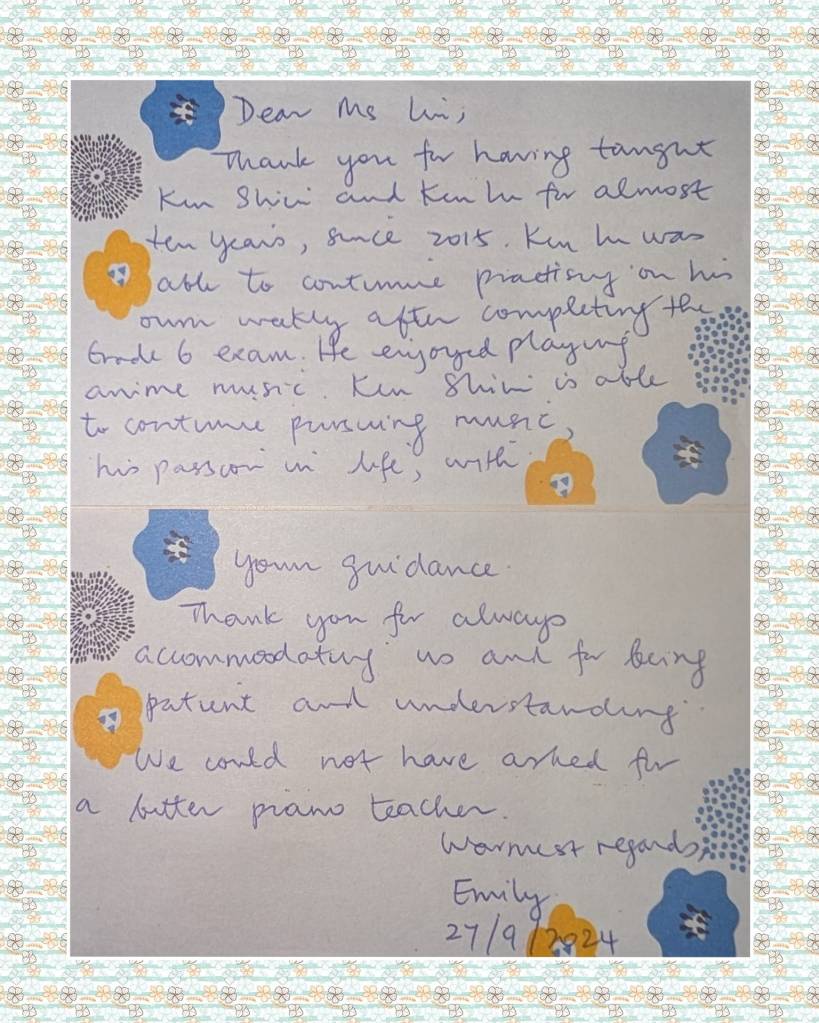 Dear Ms Lin,
Thank you for having taught
Ken Shin and Ken In for almost
ten years, since 2015. Ken In was
able to continue practising on his
own weekly after completing the
Grade 6 exam. He enjoyed playing
anime music. Ken Shin is able
to continue pursuing music,
his passion in life, with
your guidance.
Thank you for always
accommodating us and for being
patient and understanding.
We could not have asked for
a better piano teacher.
Warmest regards,
Emily
27/9/2024